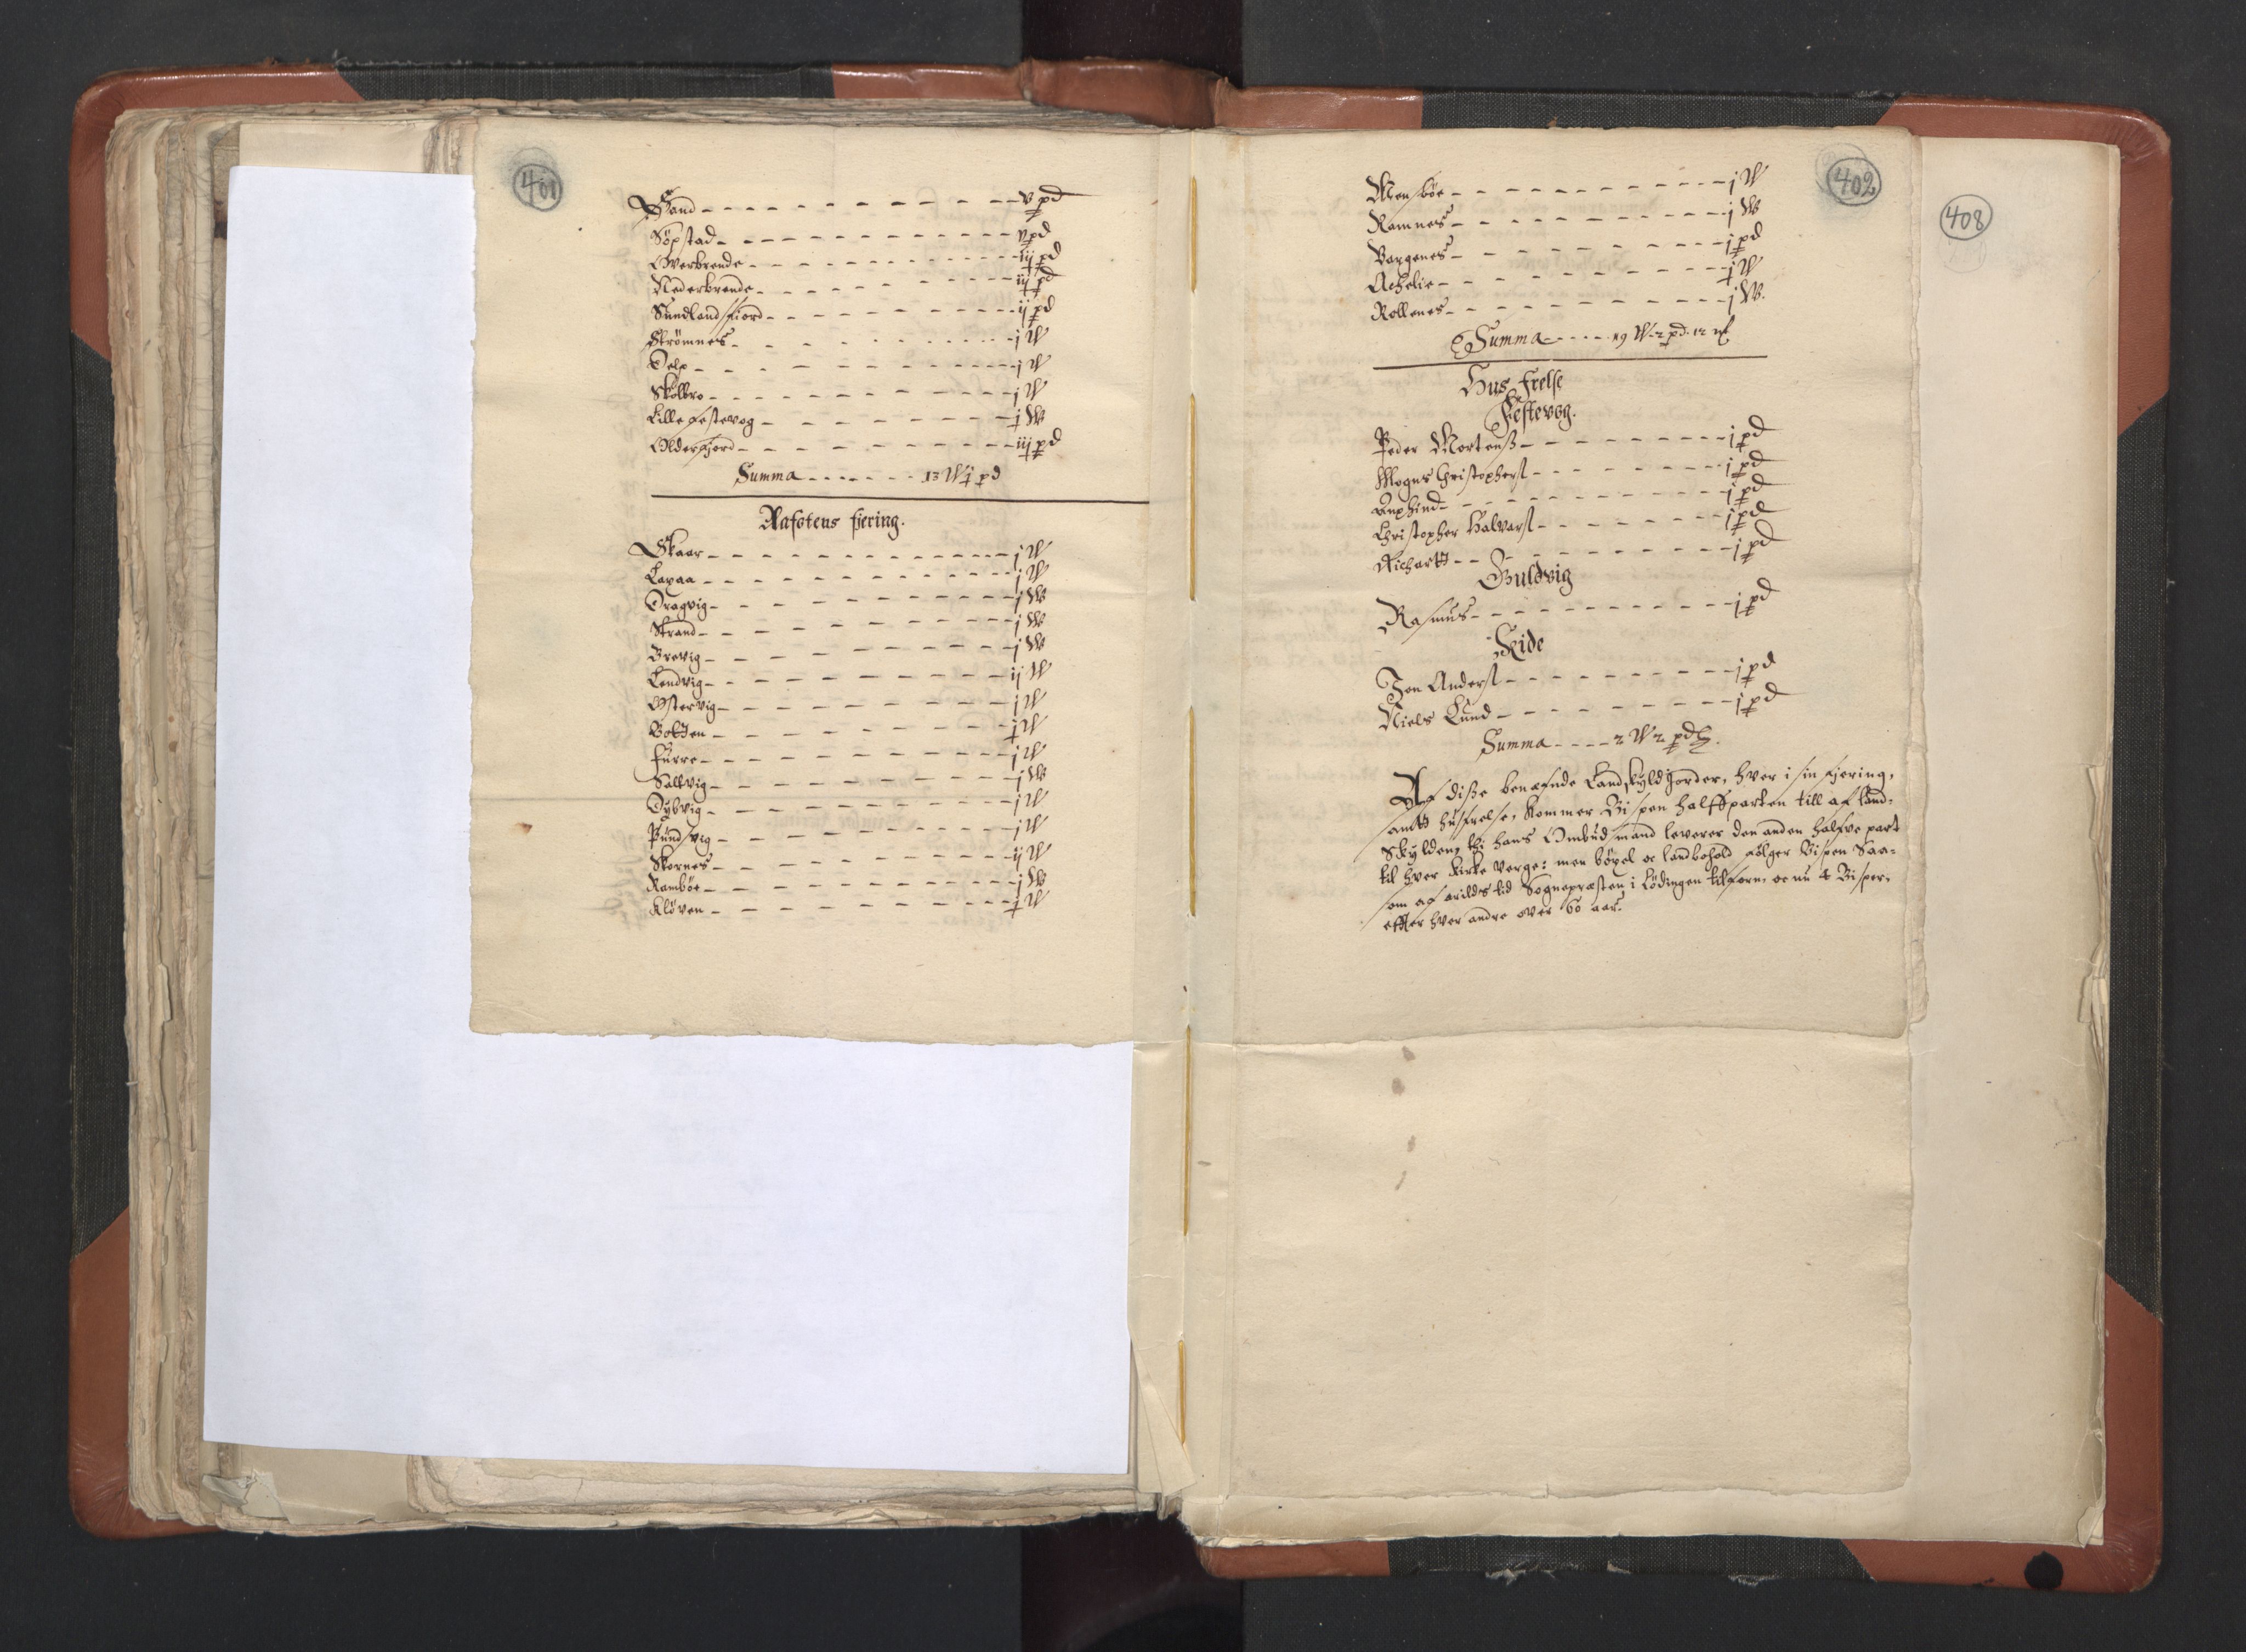 401
Sand - - - - - - - - - - - v pd
Söpstad - - - - - - - - - - - v pd
Overbrende - - - - - - - - - - - iij pd
Nederbrende - - - - - - - - - iij pd
Sundlandsfiord - - - - - - - - ij pd
Strömnes - - - - - - - - - - j W
Delp - - - - - - - - - - j W
Skolbro - - - - - - - - - - j W
Lille festevog - - - - - - - - j W
Olderfjord - - - - - - - - - iij pd
Summa - - - - - - - 13 W j pd
Rafstens fiering.
Skaar - - - - - - - - - - - j W
Lavaa - - - - - - - - - - - j W
Dragvig - - - - - - - - - - j W
Strand - - - - - - - - - - j W
Brevig - - - - - - - - - - j W
Lendvig - - - - - - - - - - ij W
Ostervig - - - - - - - - - - j W
Botten - - - - - - - - - - j W
Furre - - - - - - - - - - j W
Saltvig - - - - - - - - - - j W
Dybvig - - - - - - - - - - j W
Pundsvig - - - - - - - - - j W
Skornes - - - - - - - - - ij W
Ramböe - - - - - - - - - - j W
Klöven - - - - - - - - - - j W
402
408
Mensböe - - - - - - - - - - j W
Ramnes - - - - - - - - - - j W
Vargenes - - - - - - - - - j pd
Achelie - - - - - - - - - - j W
Rollenes - - - - - - - - - j W.
Summa - - - - - 19 W. 2 pd. 12
Hus frelse
Festevog.
Peder Mortenß - - - - - - - - - j pd
Mogns Christophers - - - - - - - j pd
- - - - - - - - - - j pd
Christopher Halvars - - - - - - - j pd
Richartt - - - - - - - - - j pd
Guldvig
Rasmus - - - - - - - - - - j pd
Kide
Jon Anders - - - - - - - - - j pd
Niels Lund - - - - - - - - j pd
Summa - - - - 2 W 2 pd
Af diße benefnde Landskyld jorder, hver i sin fjering,
samtt husfrelse, kommer Bispen halffparten till af land-
skylden, thi hans Ombudsmand leverer den anden halfve part
til hver kirke verge: men böxel oc landbohold fölger Bispen Saa-
som af arilds tid Sognepræsten i Lödingen tilforn, oc nu 4 Bisper,
effter hver andre over 60 aar.